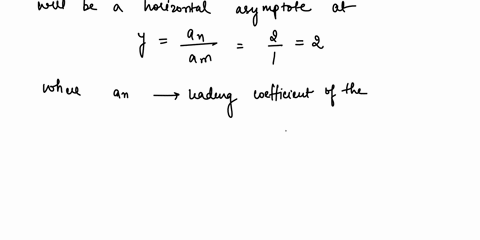 will be a horizontal asymptote at
y = an/am = 2/1 = 2
where an → leading coefficient of the